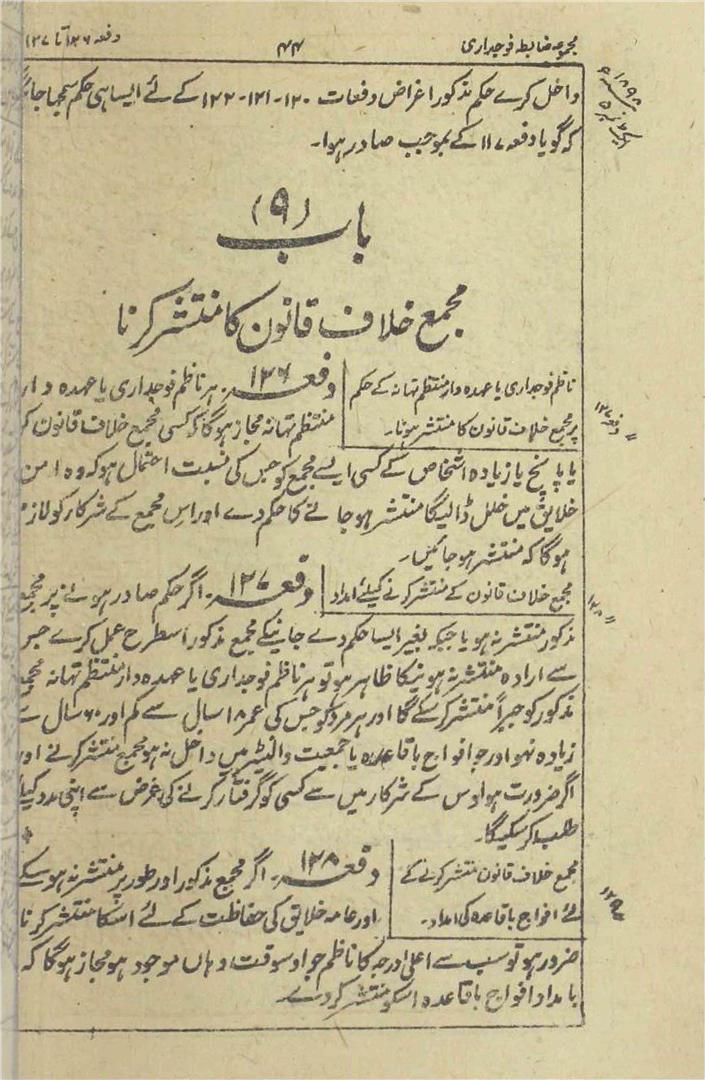 مجموعہ ضابطہ فوجداری
۴۴
دفعہ ۱۲۶ تا ۱۲۷
داخل کرے حکم مذکور اغراض دفعات ۱۲۰-۱۲۱-۱۲۲ کے لئے ایسا ہی حکم سمجھا جائے
کہ گویا دفعہ ۱۱۷ کے بموجب صادر ہوا۔
باب (۹)
مجمع خلاف قانون کا منتشر کرنا
ناظم فوجداری یا عہدہ دار منتظم تہانہ کے حکم
پر مجمع خلاف قانون کا منتشر ہونا۔
دفعہ ۱۲۶۔ ہر ناظم فوجداری یا عہدہ دار
منتظم تہانہ مجاز ہوگا کہ کسی مجمع خلاف قانون کو
یا پانچ یا زیادہ اشخاص کے کسی ایسے مجمع کو جس کی نسبت احتمال ہو کہ وہ امن
خلایق میں خلل ڈالیگا منتشر ہو جانے کا حکم دے اور اس مجمع کے شرکار کو لازم
ہوگا کہ منتشر ہو جائیں۔
مجمع خلاف قانون کے منتشر کرنے کیلئے امداد
دفعہ ۱۲۷۔ اگر حکم صادر ہونے پر مجمع
مذکور منتشر نہ ہو یا جبکہ بغیر ایسا حکم دے جانیکے مجمع مذکور اسطرح عمل کرے جس
سے ارادہ منتشر نہ ہونیکا ظاہر ہو تو ہر ناظم فوجداری یا عہدہ دار منتظم تہانہ مجمع
مذکور کو جبراً منتشر کرسکے گا اور ہر مرد کو جس کی عمر ۱۸ سال سے کم اور ۶۰ سال سے
زیادہ نہو اور جو افواج باقاعدہ یا جمعیت والنٹیر میں داخل نہ ہو مجمع منتشر کرنے اور
اگر ضرورت ہو اوس کے شرکار میں سے کسی کو گرفتار کرنے کی غرض سے اپنی مدد کیلئے
طلب کرسکیگا۔
مجمع خلاف قانون منتشر کرنے کے
لئے افواج باقاعدہ کی امداد۔
دفعہ ۱۲۸۔ اگر مجمع مذکور اور طور پر منتشر نہ ہوسکے
اور عامہ خلایق کی حفاظت کے لئے اسکا منتشر کرنا
ضرور ہو تو سب سے اعلیٰ درجہ کا ناظم جو اوسوقت وہاں موجود ہو مجاز ہوگا کہ
بامداد افواج باقاعدہ اسکو منتشر کردے۔